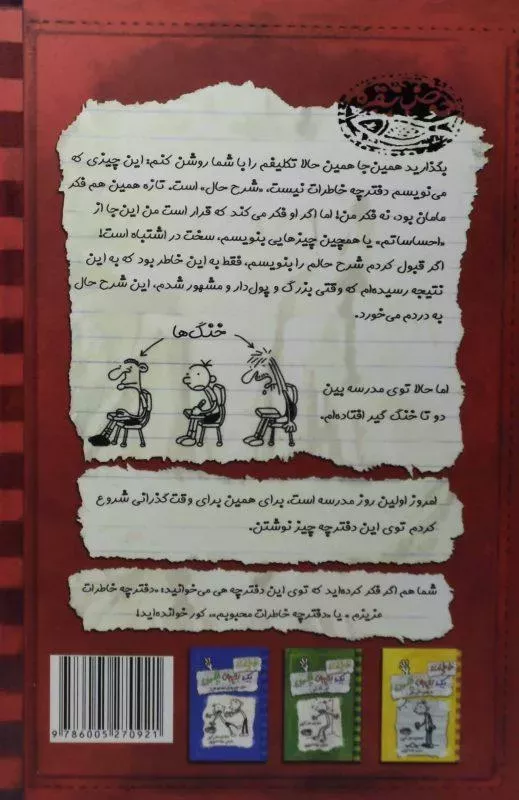 بگذارید همین‌جا همین حالا تکلیفم را با شما روشن کنم: این چیزی که
می‌نویسم دفترچه خاطرات نیست، «شرح حال» است. تازه همین هم فکر
مامان بود، نه فکر من! اما اگر او فکر می‌کند که قرار است من این‌جا از
«احساساتم» یا همچین چیزهایی بنویسم، سخت در اشتباه است!
اگر قبول کردم شرح حالم را بنویسم، فقط به این خاطر بود که به این
نتیجه رسیده‌ام که وقتی بزرگ و پول‌دار و مشهور شدم، این شرح حال
به دردم می‌خورد.
خنگ‌ها
اما حالا توی مدرسه بین
دو تا خنگ گیر افتاده‌ام.
امروز اولین روز مدرسه است، برای همین برای وقت گذرانی شروع
کردم توی این دفترچه چیز نوشتن.
شما هم اگر فکر کرده‌اید که توی این دفترچه هی می‌خوانید: «دفترچه خاطرات
عزیزم» یا «دفترچه خاطرات محبوبم»، کور خوانده‌اید!
9 786005 270921